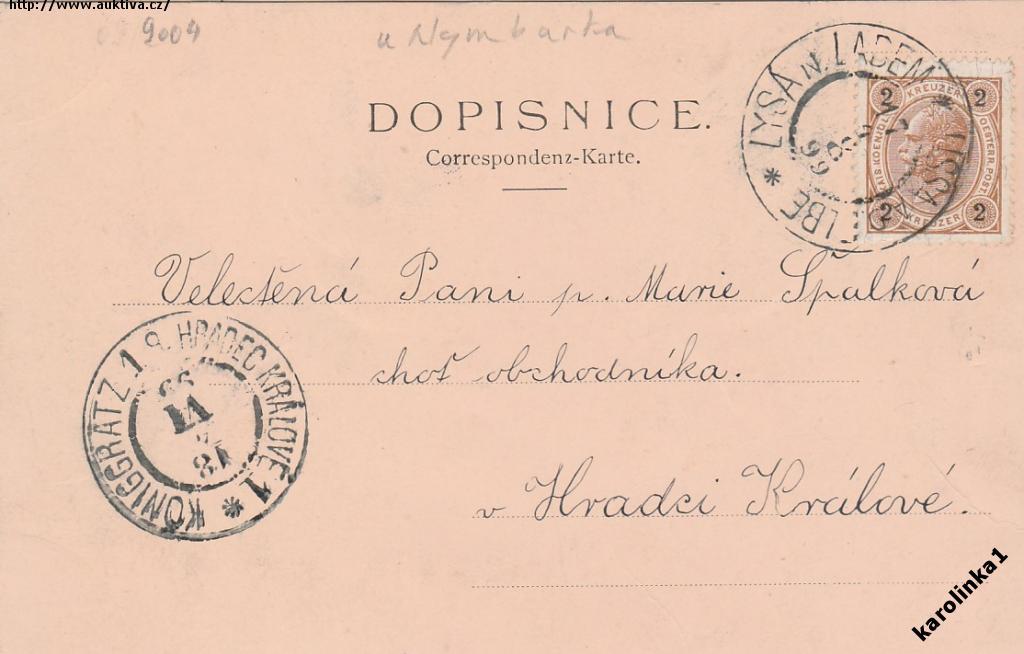 http://www.auktiva.cz/
2009 u Nymburka
DOPISNICE.
Correspondenz-Karte.
LYSÁ N. LABEM
LISSA A. D. ELBE
99
2 KREUZER 2
KAIS. KOENIGL. OESTERR. POST
2 KREUZER 2
Velectěná Paní p. Marie Špalková
choť obchodníka.
v Hradci Králové.
KÖNIGGRATZ 1 HRADEC KRÁLOVÉ 1
18
VI
99
karolinka1